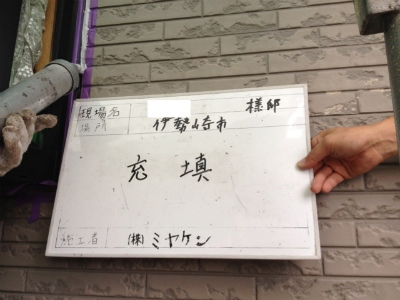 現場名 様邸
場所 伊勢崎市
充填
施工者 (株)ミヤケン